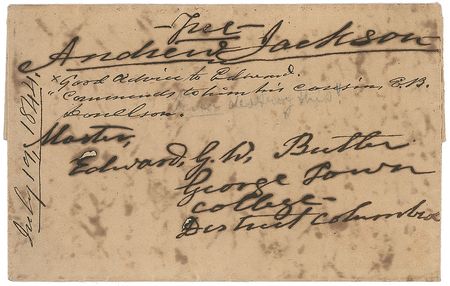 Free
Andrew Jackson
× Good advice to Edward.
" Commends to him his cousin E.B.
Donelson.
Master,
Edward, G. W. Butler
George Town
College
District Columbia
July 19, 1844.